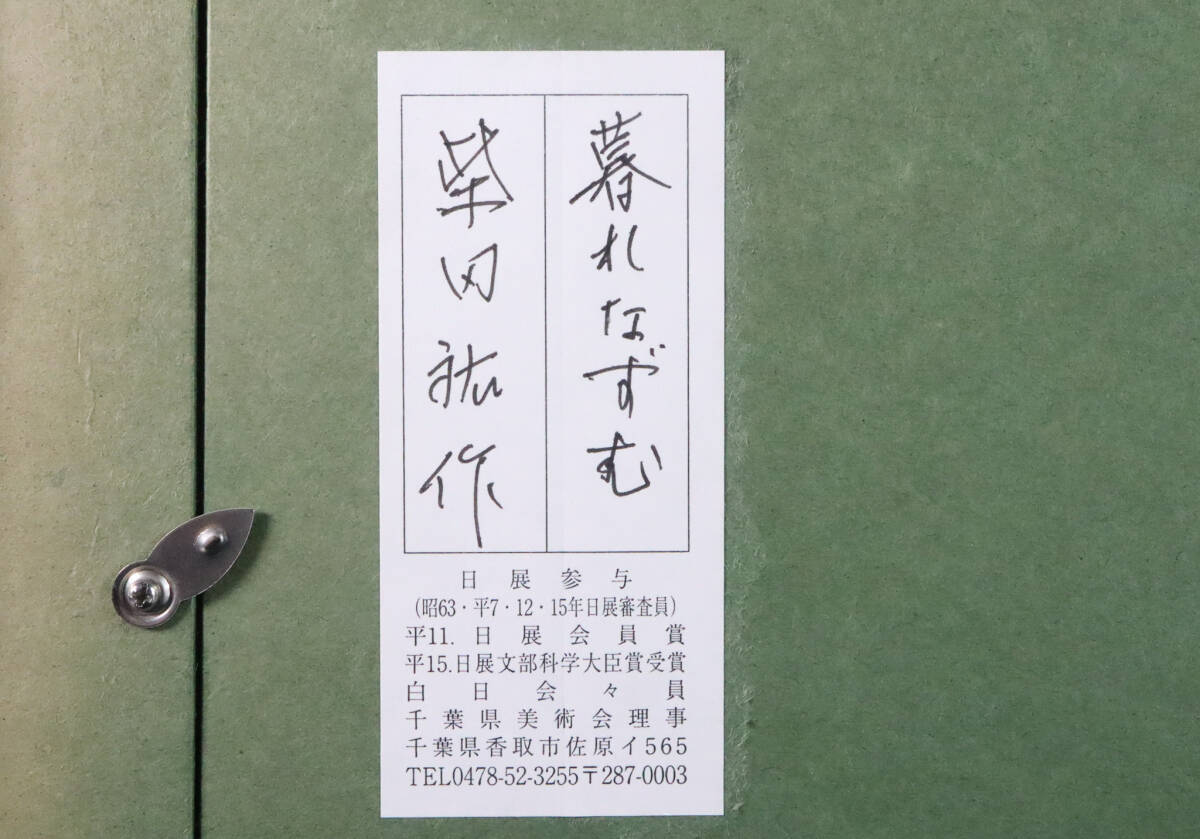 暮れなずむ
柴田祐作
日展参与
(昭63・平7・12・15年日展審査員)
平11.日展会員賞
平15.日展文部科学大臣賞受賞
白日会々員
千葉県美術会理事
千葉県香取市佐原イ565
TEL0478-52-3255〒287-0003